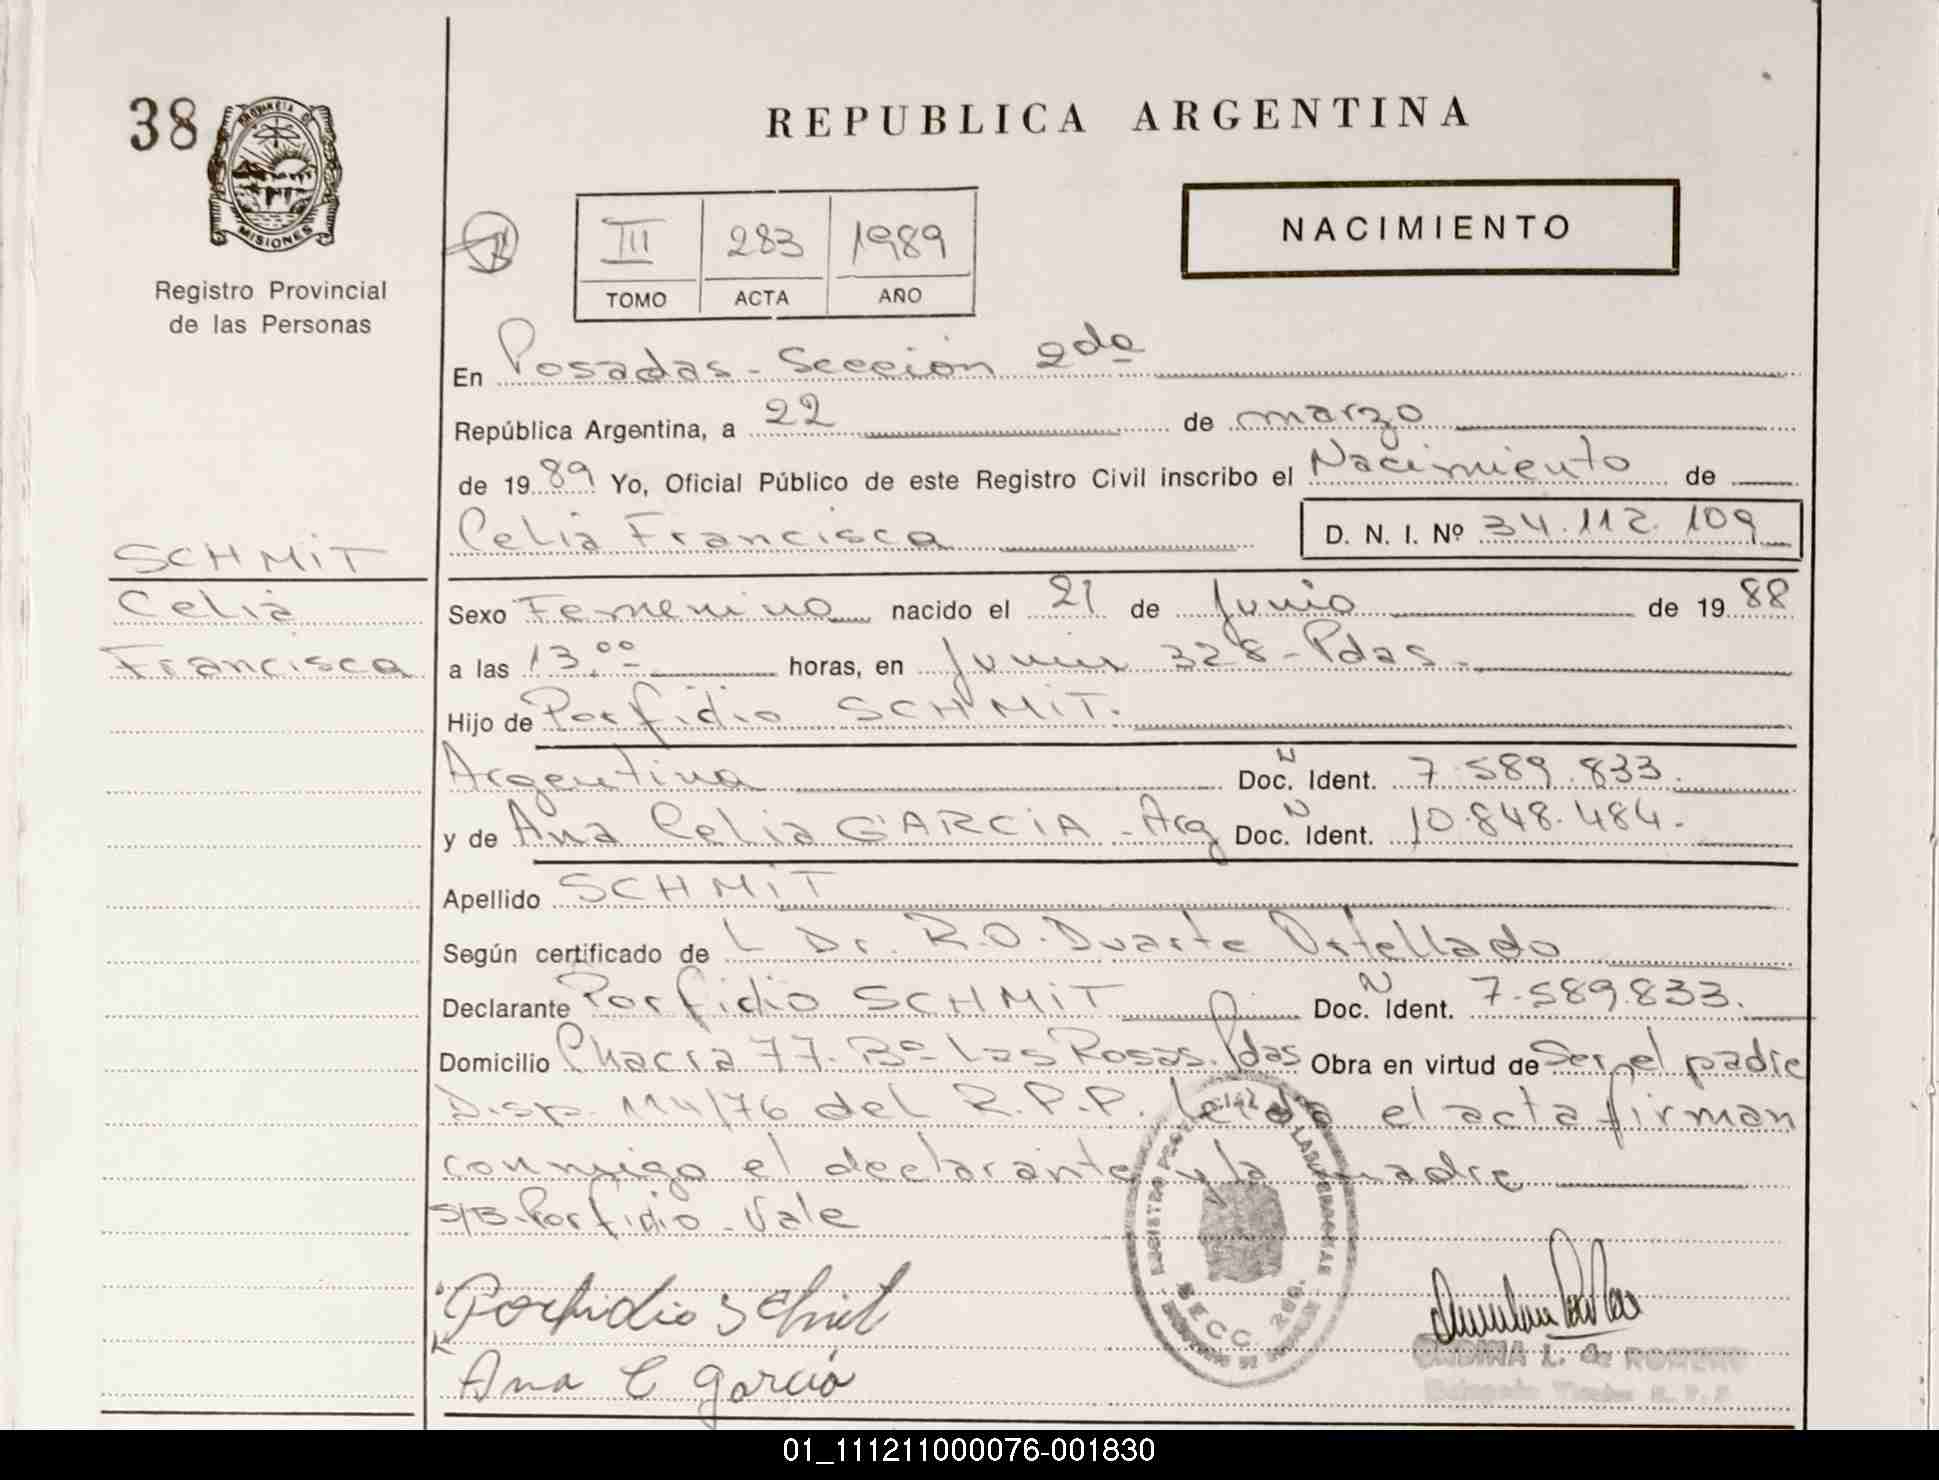 38
PROVINCIA DE
MISIONES
Registro Provincial
de las Personas
REPUBLICA ARGENTINA
NACIMIENTO
III 283 1989
TOMO ACTA AÑO
En Posadas - Sección 2da
República Argentina, a 22 de marzo
de 1989 Yo, Oficial Público de este Registro Civil inscribo el Nacimiento de
Celia Francisca D. N. I. Nº 34.112.109
SCHMIT
Celia
Francisca
Sexo Femenino nacido el 21 de Junio de 1988
a las 13.00 horas, en Junin 328 - Pdas.
Hijo de Porfidio SCHMIT.
Argentina Doc. N Ident. 7.589.833.
y de Ana Celia GARCIA - Arg Doc. N Ident. 10.848.484.
Apellido SCHMIT
Según certificado de L Dr. R.O. Duarte Ortellado
Declarante Porfidio SCHMIT Doc. N Ident. 7.589.833.
Domicilio Chacra 77. Bº Las Rosas. Pdas Obra en virtud de Ser el padre
Disp. 114/76 del R.P.P. leida el acta firman
conmigo el declarante y la madre
S/B. Porfidio - Vale
Porfidio Schmit
Ana C Garcia
SECC. 2da.
ONDINA L. de ROMERO
01_111211000076-001830